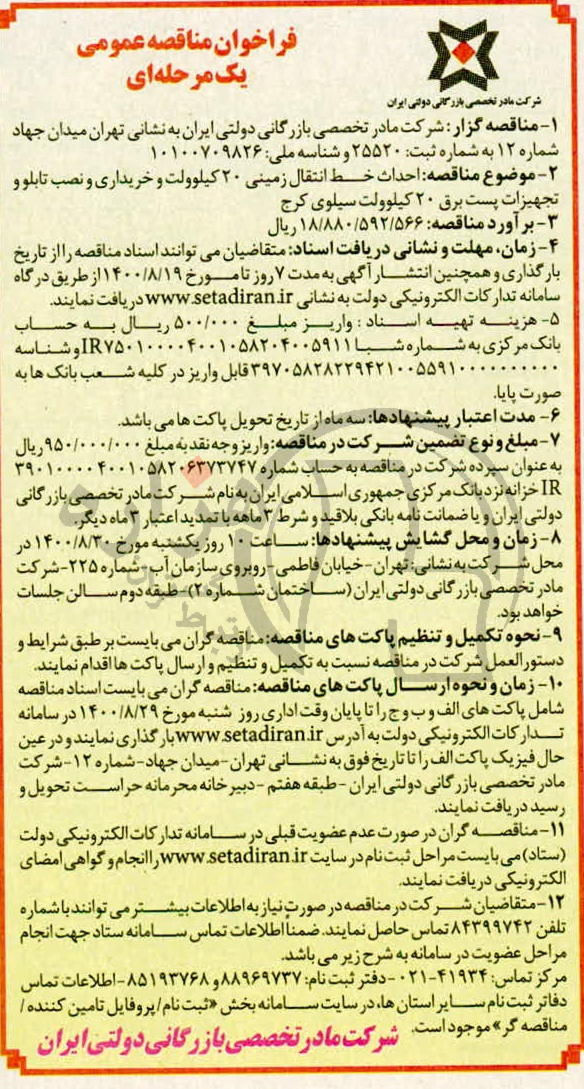 فراخوان مناقصه عمومی
یک مرحله‌ای
شرکت مادر تخصصی بازرگانی دولتی ایران
۱- مناقصه گزار: شرکت مادر تخصصی بازرگانی دولتی ایران به نشانی تهران میدان جهاد
شماره ۱۲ به شماره ثبت: ۲۵۵۲۰ و شناسه ملی: ۱۰۱۰۰۷۰۹۸۲۶
۲- موضوع مناقصه: احداث خط انتقال زمینی ۲۰ کیلوولت و خریداری و نصب تابلو و
تجهیزات پست برق ۲۰ کیلوولت سیلوی کرج
۳- برآورد مناقصه: ۱۸/۸۸۰/۵۹۲/۵۶۶ ریال
۴- زمان، مهلت و نشانی دریافت اسناد: متقاضیان می توانند اسناد مناقصه را از تاریخ
بارگذاری و همچنین انتشار آگهی به مدت ۷ روز تا مورخ ۱۴۰۰/۸/۱۹ از طریق درگاه
سامانه تدارکات الکترونیکی دولت به نشانی www.setadiran.ir دریافت نمایند.
۵- هزینه تهیه اسناد: واریز مبلغ ۵۰۰/۰۰۰ ریال به حساب
بانک مرکزی به شماره شبا IR۷۵۰۱۰۰۰۰۴۰۰۱۰۵۸۲۰۴۰۰۵۹۱۱ و شناسه
۳۹۷۰۵۸۲۸۲۲۹۴۲۱۰۰۵۵۹۱۰۰۰۰۰۰۰۰۰۰ قابل واریز در کلیه شعب بانک ها به
صورت پایا.
۶- مدت اعتبار پیشنهادها: سه ماه از تاریخ تحویل پاکت ها می باشد.
۷- مبلغ و نوع تضمین شرکت در مناقصه: واریز وجه نقد به مبلغ ۹۵۰/۰۰۰/۰۰۰ ریال
به عنوان سپرده شرکت در مناقصه به حساب شماره ۳۹۰۱۰۰۰۰۴۰۰۱۰۵۸۲۰۶۳۷۳۷۴۷
IR خزانه نزد بانک مرکزی جمهوری اسلامی ایران به نام شرکت مادر تخصصی بازرگانی
دولتی ایران و یا ضمانت نامه بانکی بلاقید و شرط ۳ ماهه با تمدید اعتبار ۳ ماه دیگر.
۸- زمان و محل گشایش پیشنهادها: ساعت ۱۰ روز یکشنبه مورخ ۱۴۰۰/۸/۳۰ در
محل شرکت به نشانی: تهران - خیابان فاطمی - روبروی سازمان آب - شماره ۲۲۵ - شرکت
مادر تخصصی بازرگانی دولتی ایران (ساختمان شماره ۲) - طبقه دوم سالن جلسات
خواهد بود.
۹- نحوه تکمیل و تنظیم پاکت های مناقصه: مناقصه گران می بایست بر طبق شرایط و
دستورالعمل شرکت در مناقصه نسبت به تکمیل و تنظیم و ارسال پاکت ها اقدام نمایند.
۱۰- زمان و نحوه ارسال پاکت های مناقصه: مناقصه گران می بایست اسناد مناقصه
شامل پاکت های الف و ب و ج را تا پایان وقت اداری روز شنبه مورخ ۱۴۰۰/۸/۲۹ در سامانه
تدارکات الکترونیکی دولت به آدرس www.setadiran.ir بارگذاری نمایند و در عین
حال فیزیک پاکت الف را تا تاریخ فوق به نشانی تهران - میدان جهاد - شماره ۱۲ - شرکت
مادر تخصصی بازرگانی دولتی ایران - طبقه هفتم - دبیرخانه محرمانه حراست تحویل و
رسید دریافت نمایند.
۱۱- مناقصه گران در صورت عدم عضویت قبلی در سامانه تدارکات الکترونیکی دولت
(ستاد) می بایست مراحل ثبت نام در سایت www.setadiran.ir را انجام و گواهی امضای
الکترونیکی دریافت نمایند.
۱۲- متقاضیان شرکت در مناقصه در صورت نیاز به اطلاعات بیشتر می توانند با شماره
تلفن ۸۴۳۹۹۷۴۲ تماس حاصل نمایند. ضمنا اطلاعات تماس سامانه ستاد جهت انجام
مراحل عضویت در سامانه به شرح زیر می باشد.
مرکز تماس: ۴۱۹۳۴-۰۲۱ - دفتر ثبت نام: ۸۸۹۶۹۷۳۷ و ۸۵۱۹۳۷۶۸ - اطلاعات تماس
دفاتر ثبت نام سایر استان ها، در سایت سامانه بخش «ثبت نام/پروفایل تامین کننده/
مناقصه گر» موجود است.
شرکت مادر تخصصی بازرگانی دولتی ایران